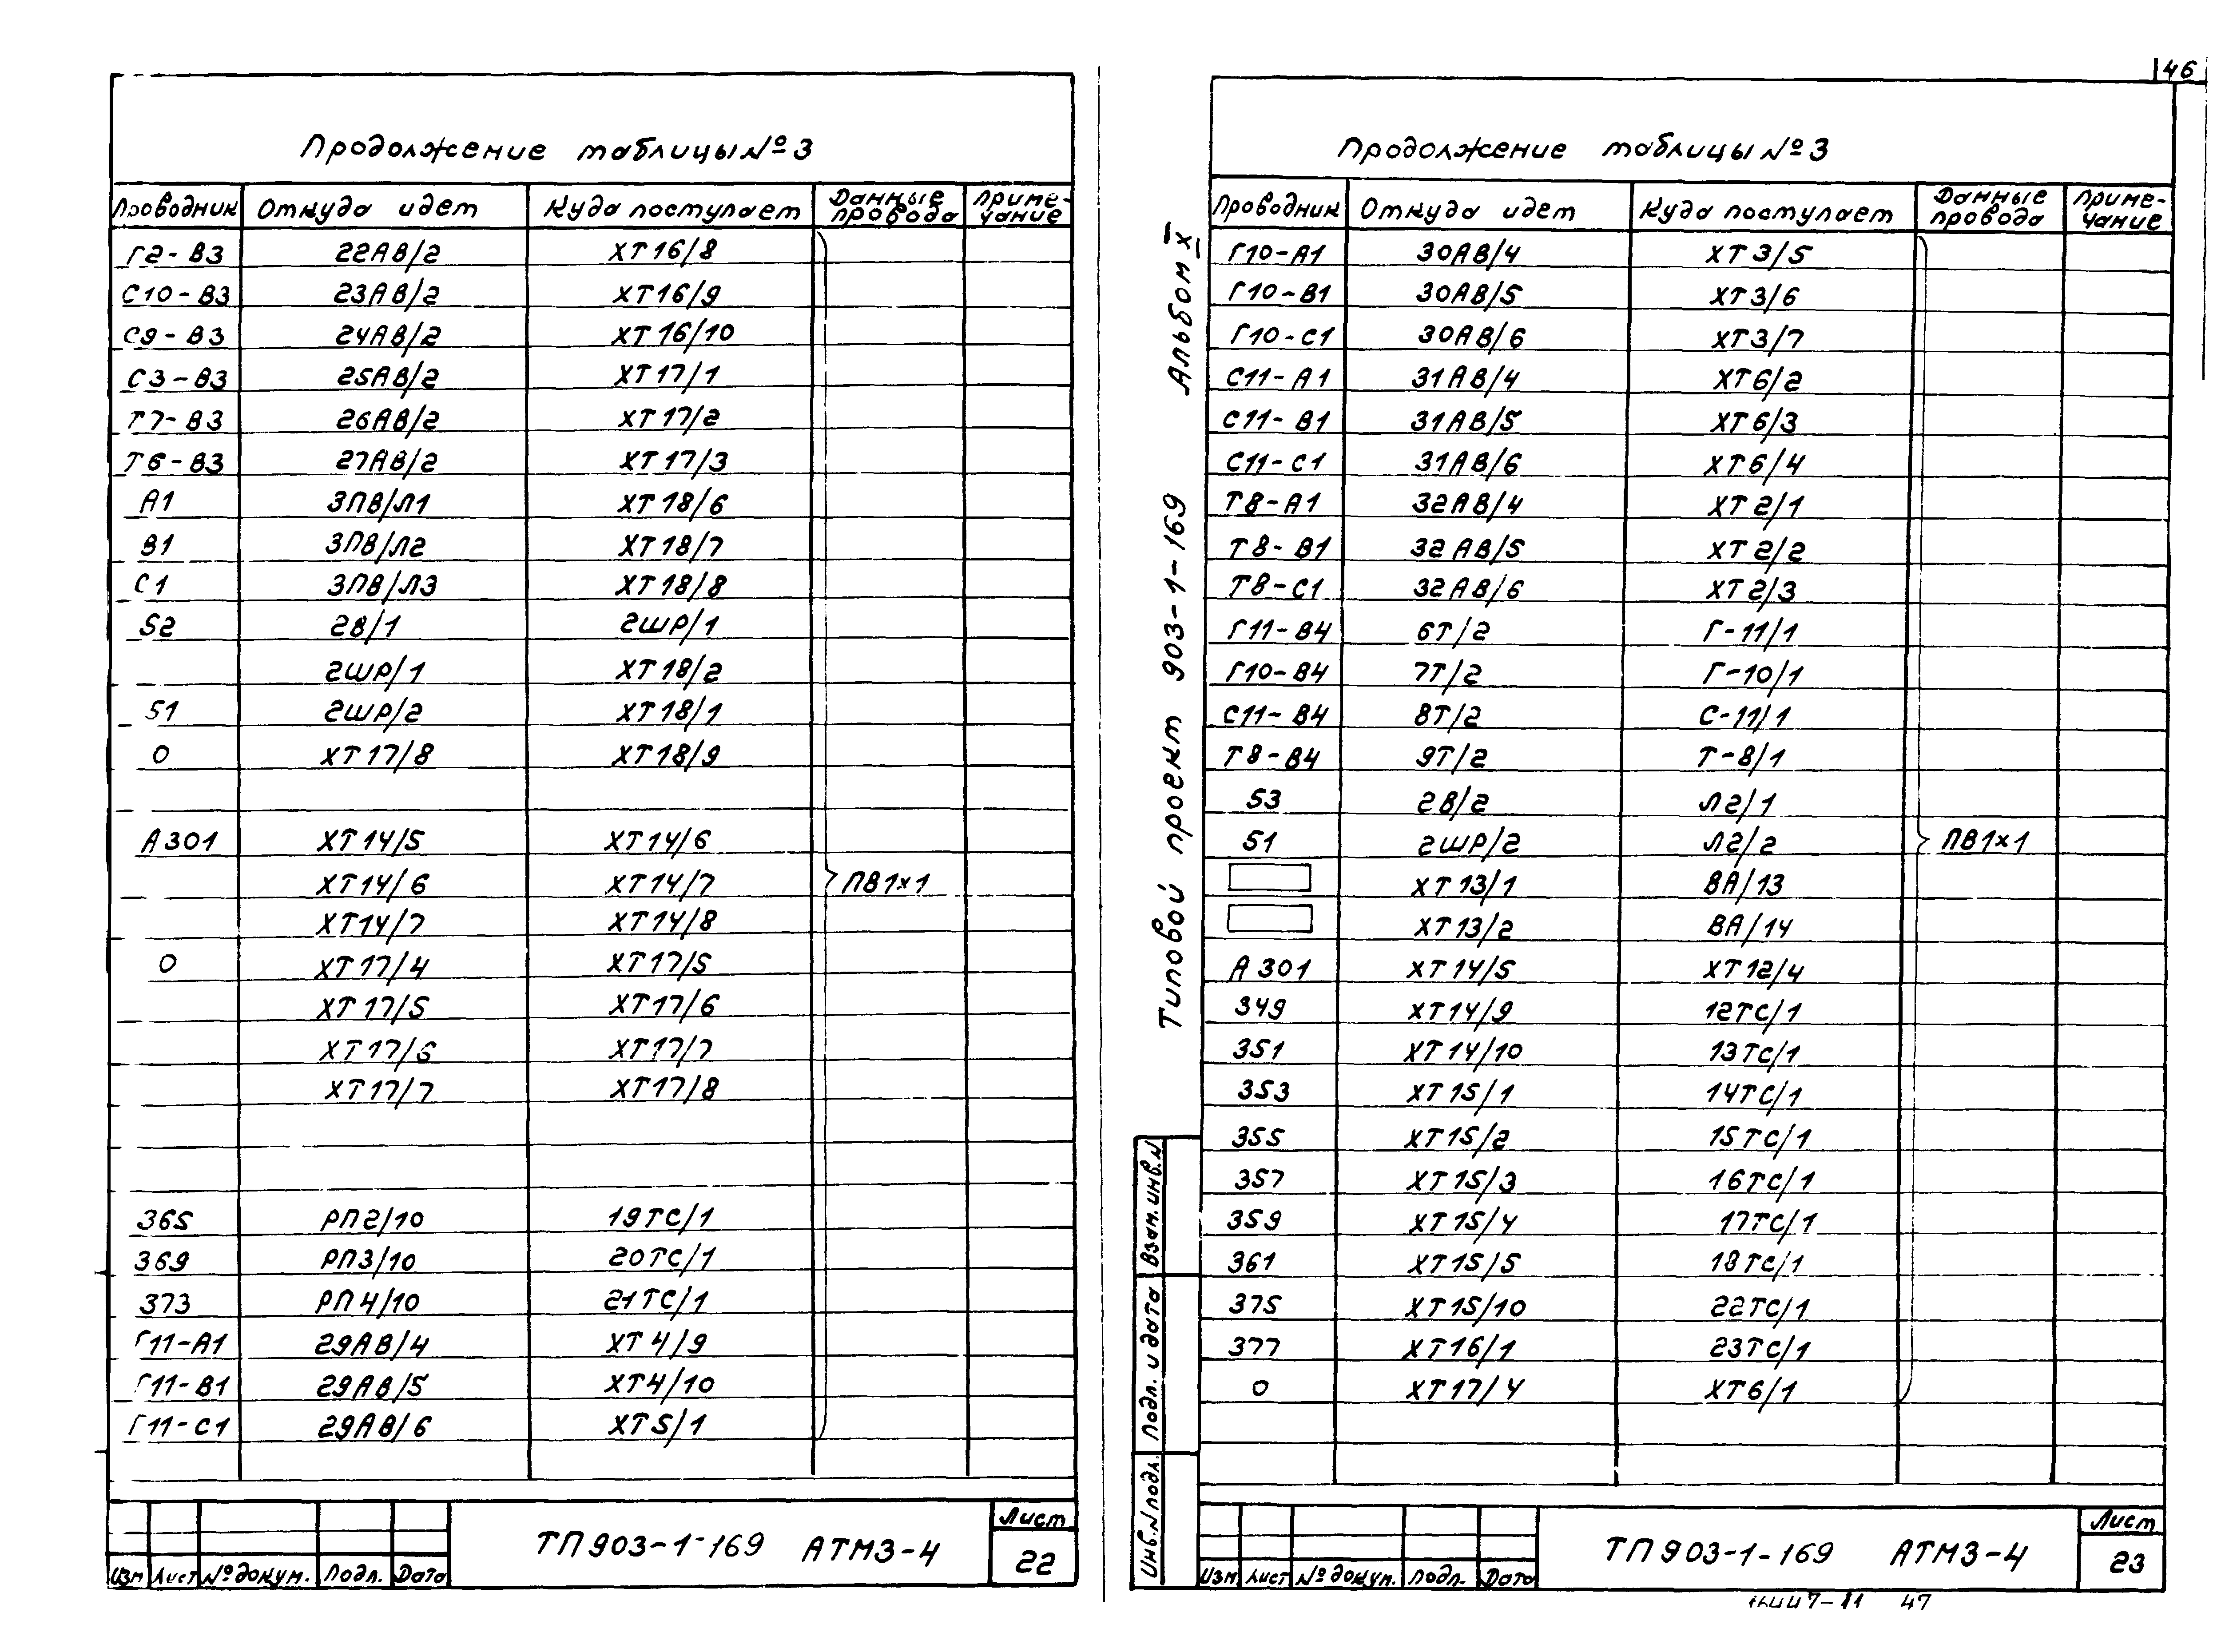 Продолжение таблицы № 3
Проводник Откуда идет Куда поступает Данные провода Приме-чание
Г2-В3 22АВ/2 ХТ16/8
С10-В3 23АВ/2 ХТ16/9
С9-В3 24АВ/2 ХТ16/10
С3-В3 25АВ/2 ХТ17/1
Т7-В3 26АВ/2 ХТ17/2
Т6-В3 27АВ/2 ХТ17/3
А1 3ПВ/Л1 ХТ18/6
В1 3ПВ/Л2 ХТ18/7
С1 3ПВ/Л3 ХТ18/8
52 2В/1 2ШР/1
2ШР/1 ХТ18/2
51 2ШР/2 ХТ18/1
0 ХТ17/8 ХТ18/9
А301 ХТ14/5 ХТ14/6
ХТ14/6 ХТ14/7 ПВ1х1
ХТ14/7 ХТ14/8
0 ХТ17/4 ХТ17/5
ХТ17/5 ХТ17/6
ХТ17/6 ХТ17/7
ХТ17/7 ХТ17/8
365 РП2/10 19ТС/1
369 РП3/10 20ТС/1
373 РП4/10 21ТС/1
Г11-А1 29АВ/4 ХТ4/9
Г11-В1 29АВ/5 ХТ4/10
Г11-С1 29АВ/6 ХТ5/1
Изм Лист № докум. Подп. Дата
ТП 903-1-169 АТМ3-4
Лист
22
46
Продолжение таблицы № 3
Проводник Откуда идет Куда поступает Данные провода Приме-чание
Г10-А1 30АВ/4 ХТ3/5
Г10-В1 30АВ/5 ХТ3/6
Г10-С1 30АВ/6 ХТ3/7
С11-А1 31АВ/4 ХТ6/2
С11-В1 31АВ/5 ХТ6/3
С11-С1 31АВ/6 ХТ6/4
Т8-А1 32АВ/4 ХТ2/1
Т8-В1 32АВ/5 ХТ2/2
Т8-С1 32АВ/6 ХТ2/3
Г11-В4 6Т/2 Г-11/1
Г10-В4 7Т/2 Г-10/1
С11-В4 8Т/2 С-11/1
Т8-В4 9Т/2 Т-8/1
53 2В/2 Л2/1
51 2ШР/2 Л2/2 ПВ1х1
ХТ13/1 ВА/13
ХТ13/2 ВА/14
А301 ХТ14/5 ХТ12/4
349 ХТ14/9 12ТС/1
351 ХТ14/10 13ТС/1
353 ХТ15/1 14ТС/1
355 ХТ15/2 15ТС/1
357 ХТ15/3 16ТС/1
359 ХТ15/4 17ТС/1
361 ХТ15/5 18ТС/1
375 ХТ15/10 22ТС/1
377 ХТ16/1 23ТС/1
0 ХТ17/4 ХТ6/1
Типовой проект 903-1-169 Альбом X
Инв.N подл. Подп. и дата Взам.инв.N
Изм Лист № докум. Подп. Дата
ТП 903-1-169 АТМ3-4
Лист
23
47